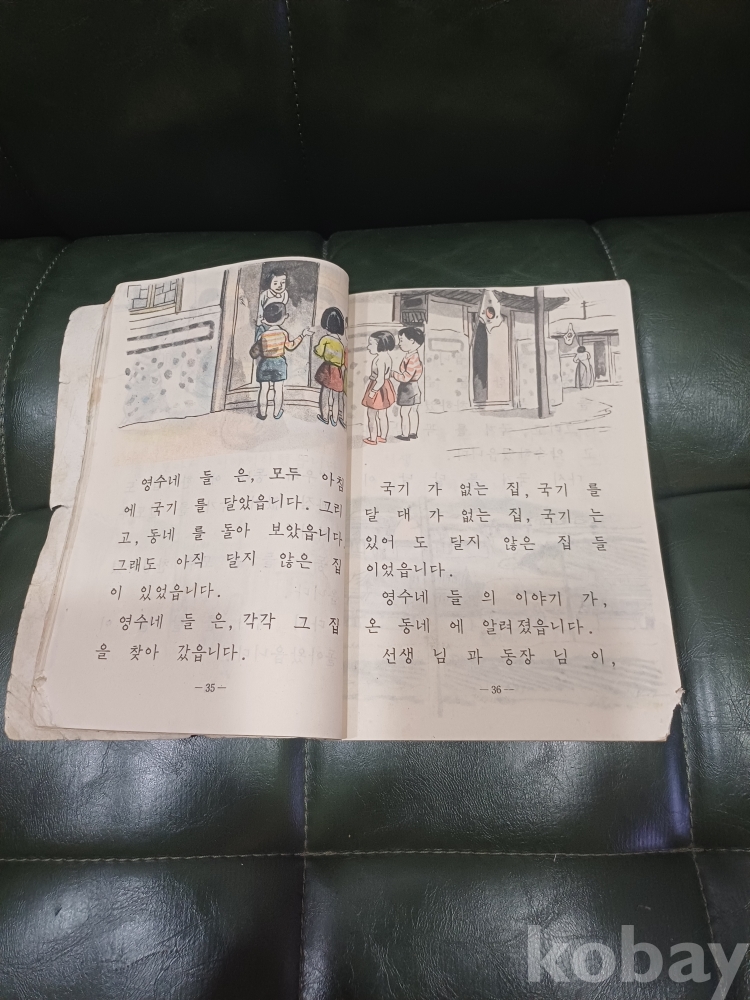 영수네 들 은, 모두 아침
에 국기 를 달았읍니다. 그리
고, 동네 를 돌아 보았읍니다.
그래도 아직 달지 않은 집
이 있었읍니다.
영수네 들 은, 각각 그 집
을 찾아 갔읍니다.
— 35 —
국기 가 없는 집, 국기 를
달 대 가 없는 집, 국기 는
있어 도 달지 않은 집 들
이었읍니다.
영수네 들 의 이야기 가,
온 동네 에 알려졌읍니다.
선생 님 과 동장 님 이,
— 36 —
kobay